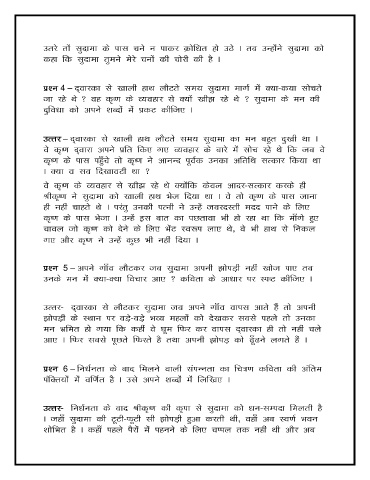 उतरे तों सुदामा के पास चने न पाकर क्रोधित हो उठे । तब उन्होंने सुदामा को
कहा कि सुदामा तुमने मेरे चनों की चोरी की है ।
प्रश्न 4 – द्वारका से खाली हाथ लौटते समय सुदामा मार्ग में क्या-क्या सोचते
जा रहे थे ? वह कृष्ण के व्यवहार से क्यों खीझ रहे थे ? सुदामा के मन की
दुविधा को अपने शब्दों में प्रकट कीजिए ।
उत्तर – द्वारका से खाली हाथ लौटते समय सुदामा का मन बहुत दुखी था ।
वे कृष्ण द्वारा अपने प्रति किए गए व्यवहार के बारे में सोच रहे थे कि जब वे
कृष्ण के पास पहुँचे तो कृष्ण ने आनन्द पूर्वक उनका अतिथि सत्कार किया था
। क्या व सब दिखावटी था ?
वे कृष्ण के व्यवहार से खीझ रहे थे क्योंकि केवल आदर-सत्कार करके ही
श्रीकृष्ण ने सुदामा को खाली हाथ भेज दिया था । वे तो कृष्ण के पास जाना
ही नहीं चाहते थे । परंतु उनकी पत्नी ने उन्हें जबरदस्ती मदद पाने के लिए
कृष्ण के पास भेजा । उन्हें इस बात का पछतावा भी हो रहा था कि माँगे हुए
चावल जो कृष्ण को देने के लिए भेंट स्वरूप लाए थे, वे भी हाथ से निकल
गए और कृष्ण ने उन्हें कुछ भी नहीं दिया ।
प्रश्न 5 – अपने गाँव लौटकर जब सुदामा अपनी झोपड़ी नहीं खोज पाए तब
उनके मन में क्या-क्या विचार आए ? कविता के आधार पर स्पष्ट कीजिए ।
उत्तर- द्वारका से लौटकर सुदामा जब अपने गाँव वापस आते हैं तो अपनी
झोपड़ी के स्थान पर बड़े-बड़े भव्य महलों को देखकर सबसे पहले तो उनका
मन भ्रमित हो गया कि कहीं वे घूम फिर कर वापस द्वारका ही तो नहीं चले
आए । फिर सबसे पूछते फिरते है तथा अपनी झोपड़ को ढूँढने लगते हैं ।
प्रश्न 6 – निर्धनता के बाद मिलने वाली संपन्नता का चित्रण कविता की अंतिम
पंक्तियों में वर्णित है । उसे अपने शब्दों में लिखिए ।
उत्तर- निर्धनता के बाद श्रीकृष्ण की कृपा से सुदामा को धन-सम्पदा मिलती है
। जहाँ सुदामा की टूटी-फूटी सी झोपड़ी हुआ करती थी, वहाँ अब स्वर्ण भवन
शोभित है । कहाँ पहले पैरों में पहनने के लिए चप्पल तक नहीं थी और अब